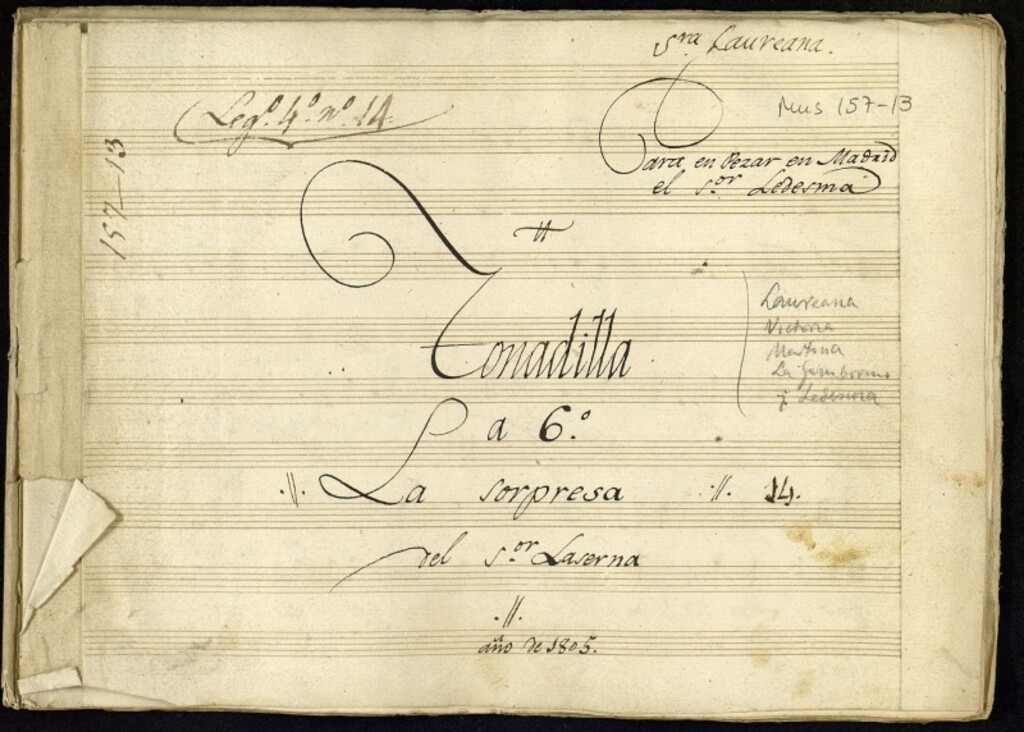 Sra Laureana.
Legº. 4º. nº. 14.
Mus 157-13
157-13
Para en Pezar en Madrid
el Sor Ledesma
Tonadilla
a 6.º
La sorpresa
14.
del Sor Laserna
año de 1805.
Laureana
Victoria
Martina
La
y Ledesma